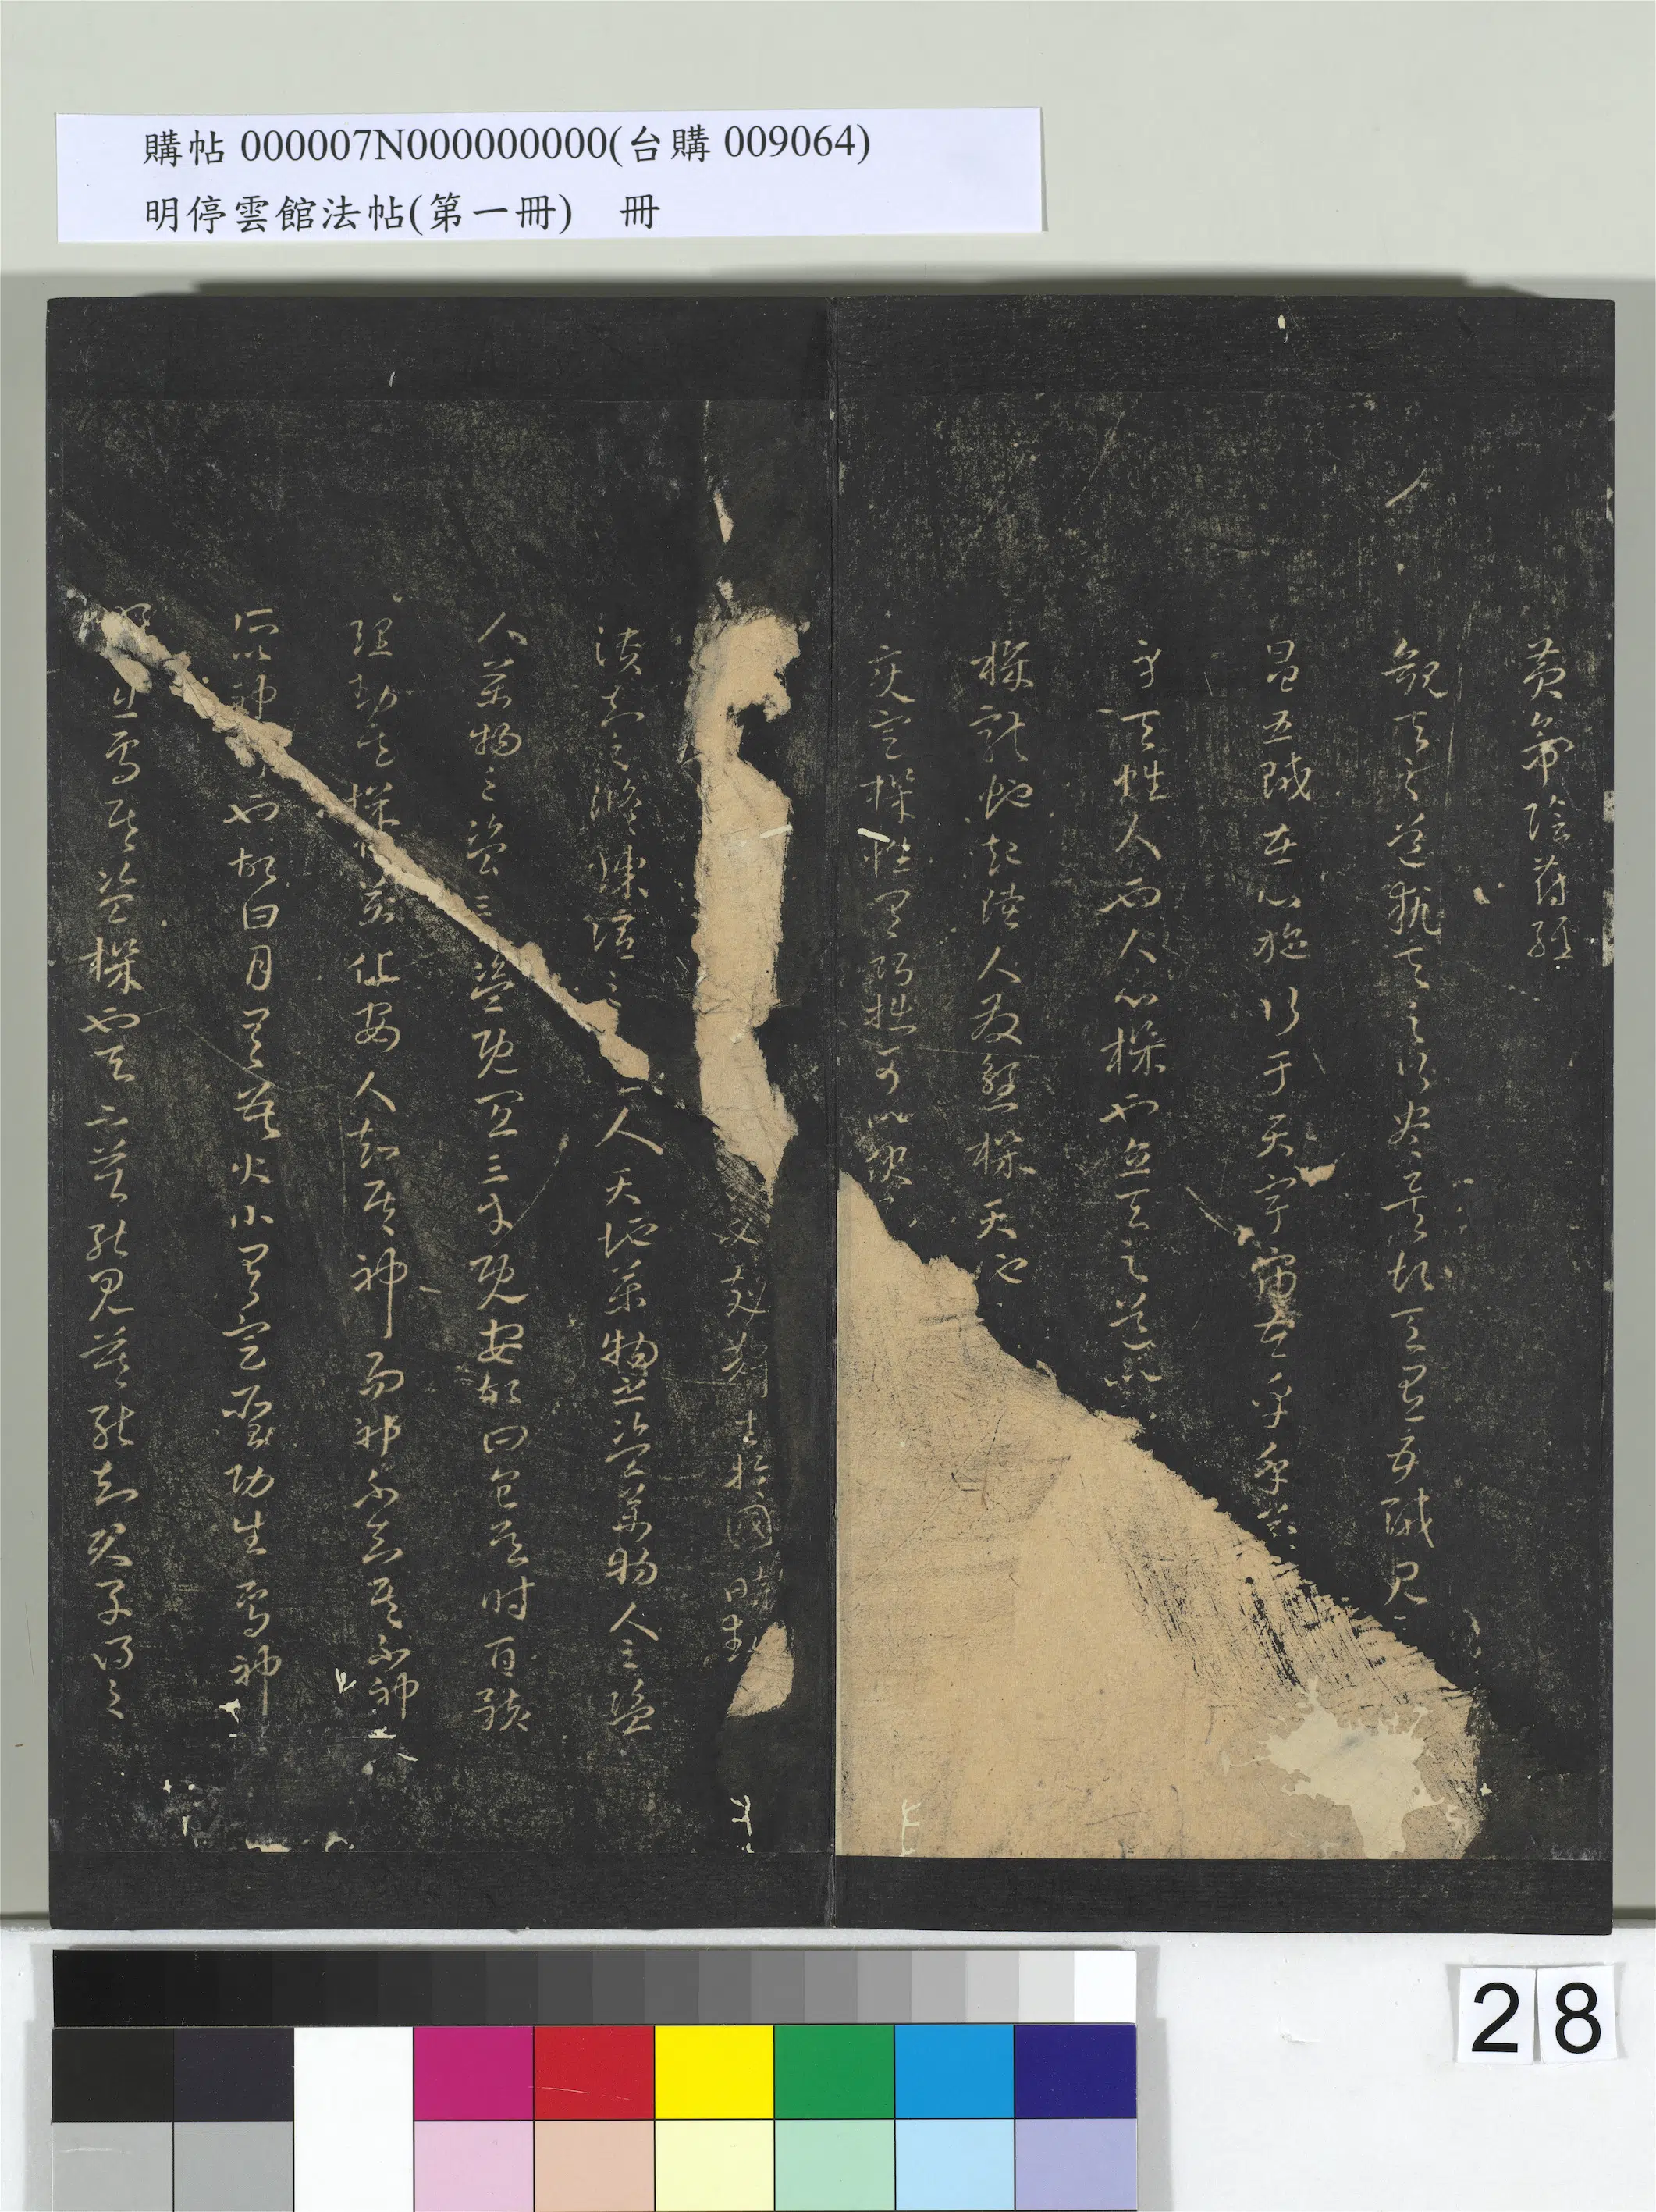 購帖 000007N000000000(台購 009064)
明停雲館法帖(第一冊)　冊
黃帝陰符經
觀天之道執天之行盡矣故天有五賊見
昌五賊在心施行于天宇宙在乎手萬
身天性人也人心機也立天之道以
機龍蛇起陸人發殺機天地
變定機性有巧拙可以伏
必克姦生於國時動
潰知之修煉謂之人天地萬物之盜萬物人之盜
人萬物之盜三盜既宜三才既安故曰食其時百骸
理動其機萬化安人知其神而神不知其不神
所以神也故日月有數大小有定聖功生焉神
明出焉其盜機也天下莫能見莫能知君子得之
28